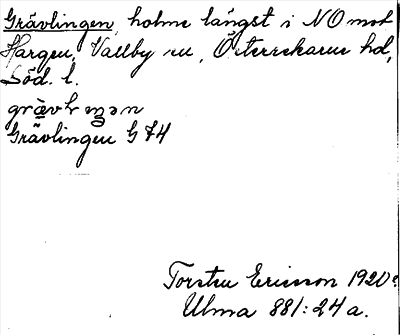 Grävlingen, holme längst i NO mot
Hargen, Vallby sn, Österrekarne hd,
Söd. l.
Grävlingen G 74
Torsten Ericsson 1920
Ulma 881:24a.